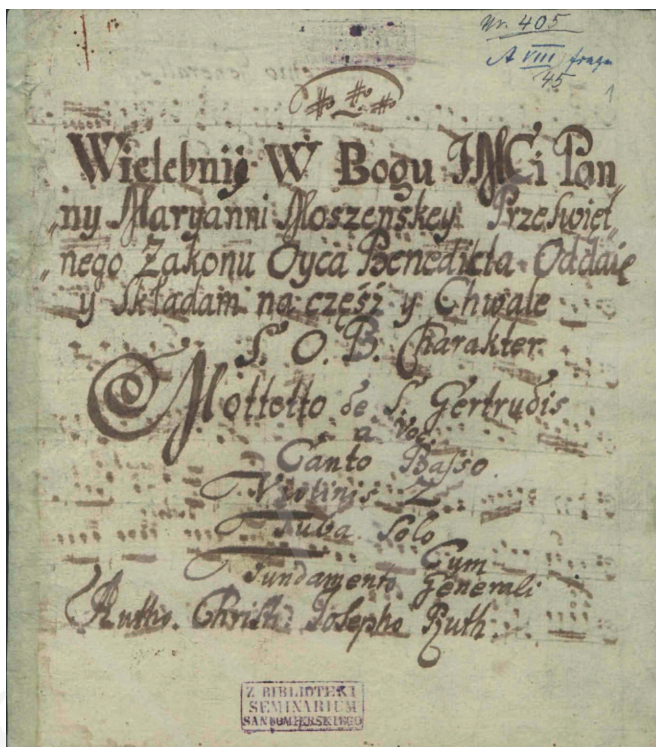 Nr. 405
A VIII fragm
45
1
Wielebnij W Bogu JMCi Pon„
„ny Maryanni Moszenskey Przeświet„
„nego Zakonu Oyca Benedicta Oddaię
y Składam na cześź y Chwałe
S. O. B. Charakter
Mottetto de S. Gertrudis
a Voci
Canto Basso
Violinis 2
Tuba Solo
Cum
Fundamento Generali
Auth. Christ: Josepho Ruth.
Z BIBLIOTEKI
SEMINARIUM
SANDOMIERSKIEGO